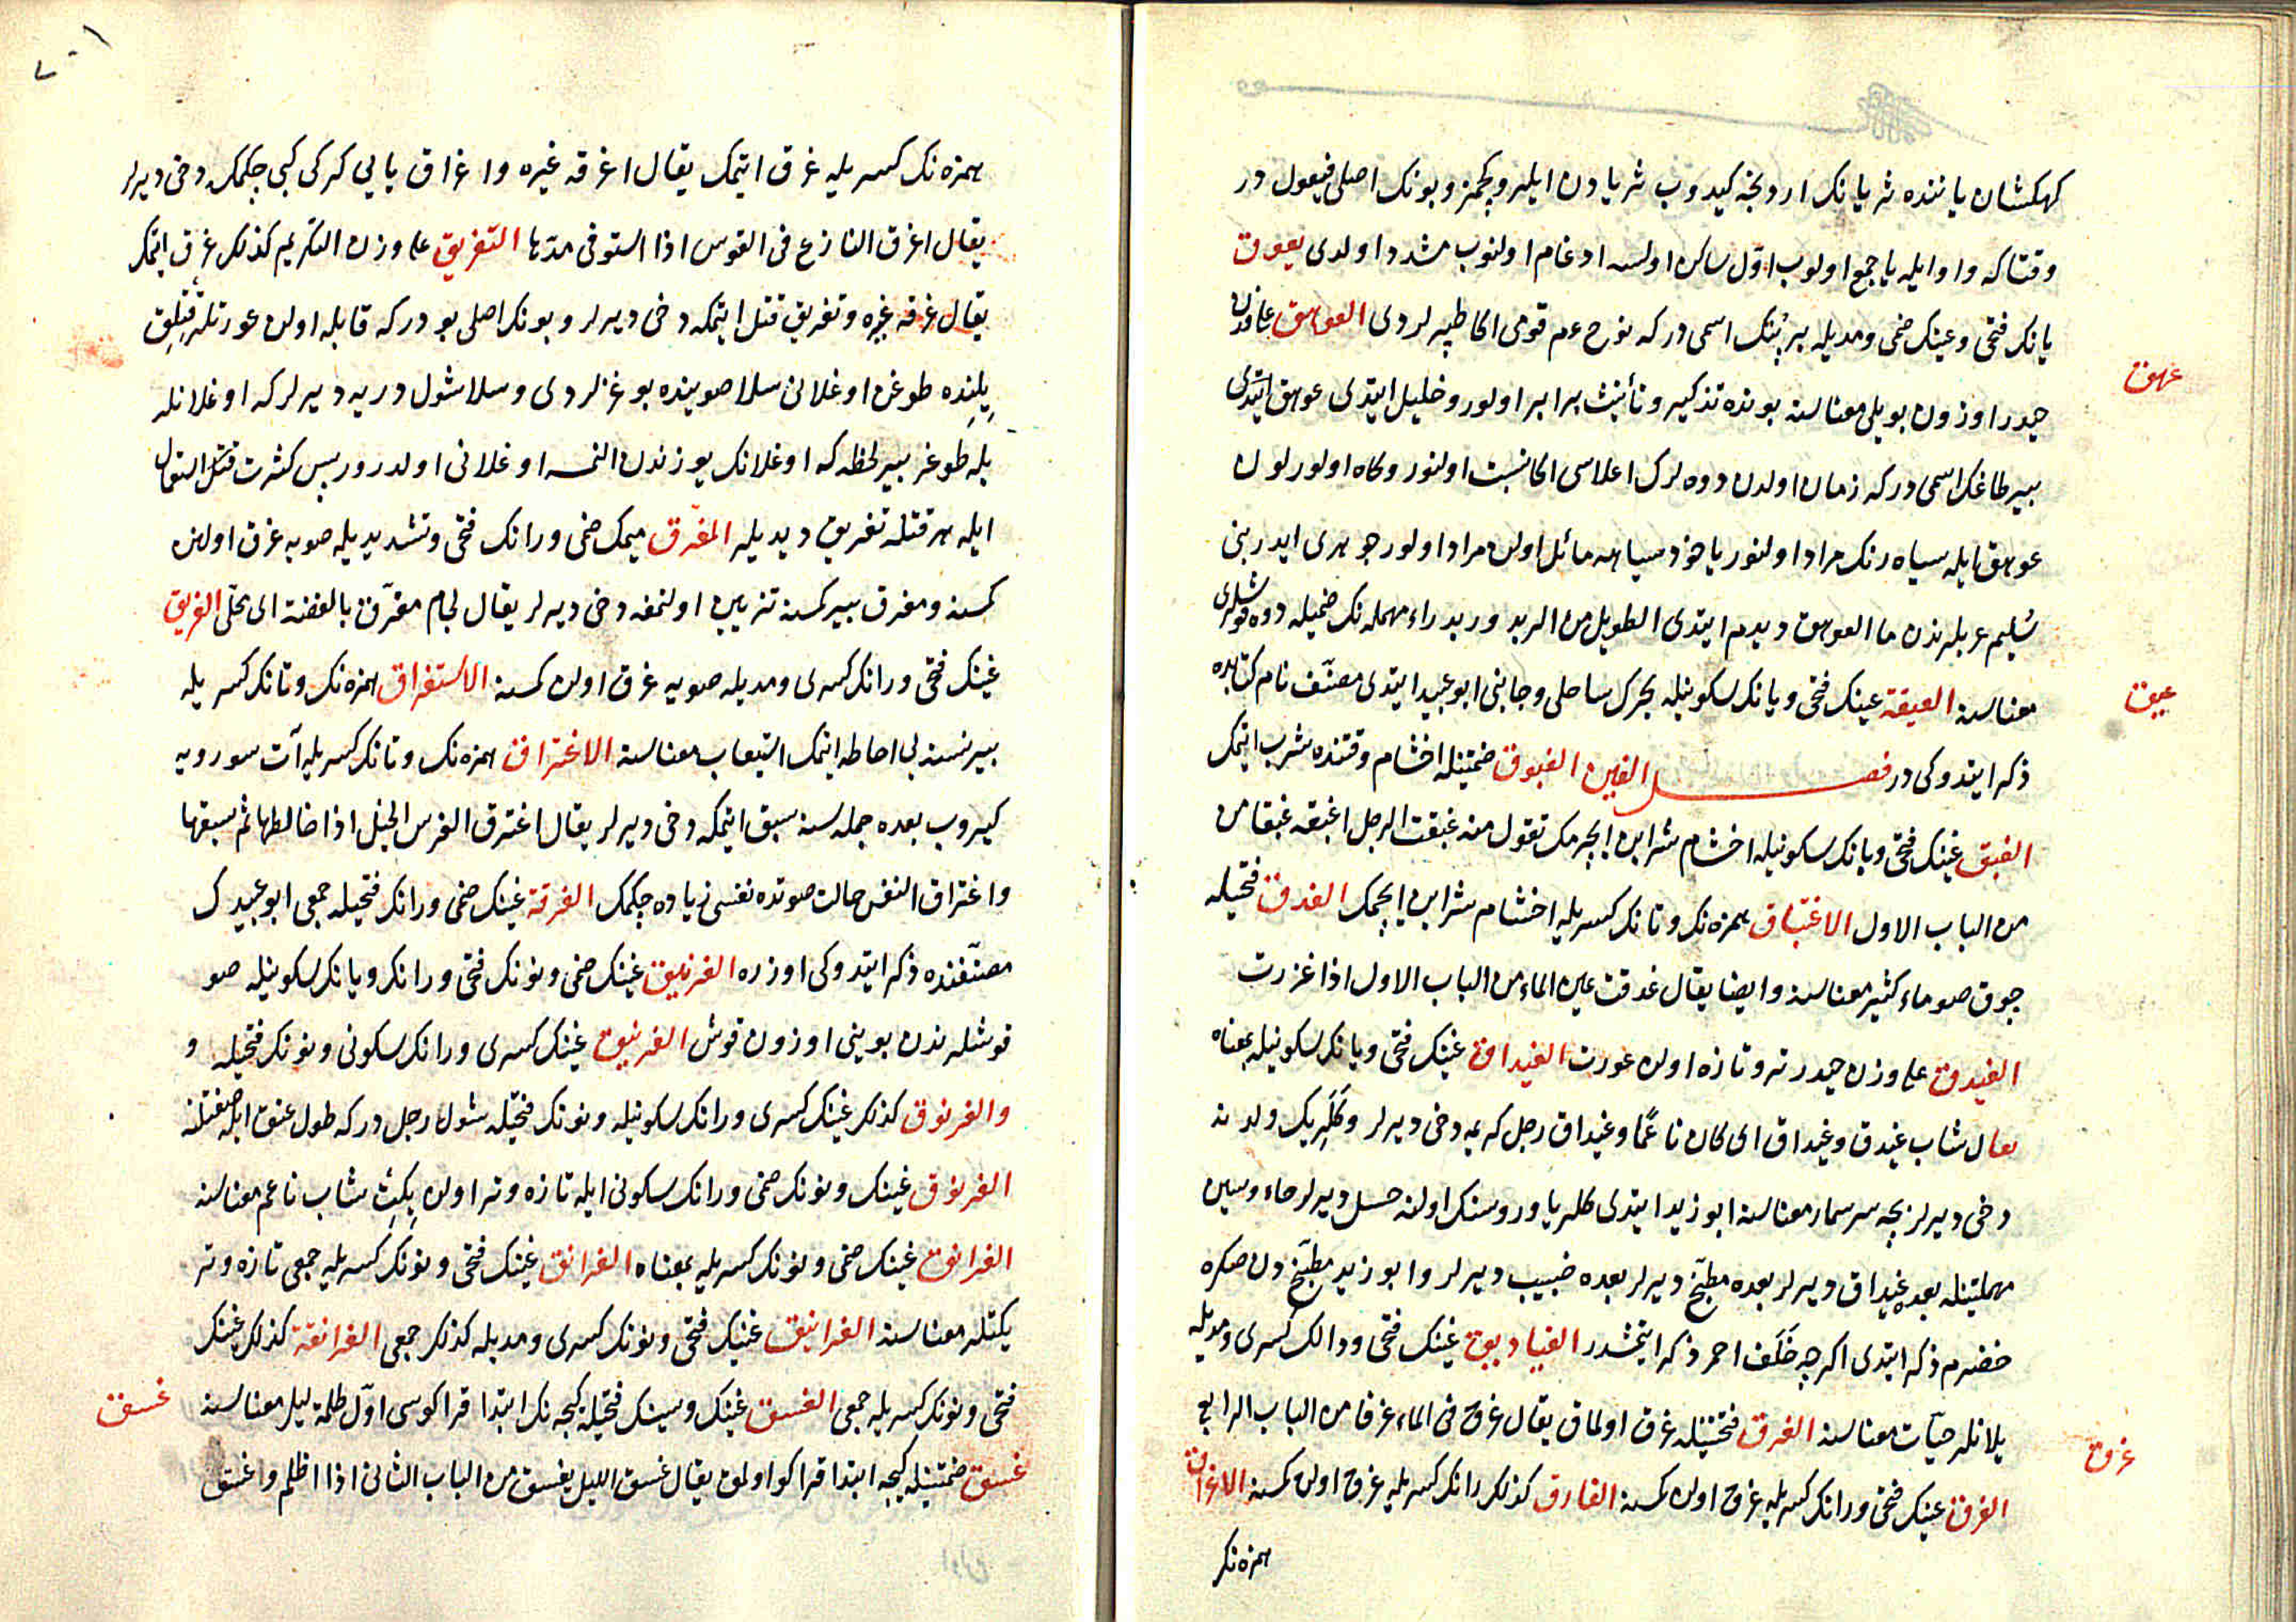 كهكشان ياننده ثريانك اردنجه كيدوب ثريادن ايلرو كچمز و بونك اصلى فيعول در
وقتاكه واو ايله يا جمع اولوب اول ساكن اولسه ادغام اولنوب مشدد اولدى يعوق
يانك فتحى و عينك ضمى و مديله بر بتك اسمى در كه نوح عم قومى اكا طپرلردى العوهق على وزن
عهق
حيدر اوزون بويلى معناسنه بونده تذكير و تأنيث برابر اولور و خليل ايتدى عوهق ايتدى
بير طاغك اسمى در كه زمان اولدن دوه لرك اعلاسى اكا نسبت اولنور و كاه اولور لون
عوهق ايله سياه رنك مراد اولنور ياخود سياهه مائل اولن مراد اولور جوهرى ايدر بنى
سليم عربلرندن ما العوهق ديدم ايتدى الطويل من الربد و ربد راء مهمله نك ضميله دوه قوشلرى
معناسنه العيقة عينك فتحى و يانك سكونيله بحرك ساحلى و جانبى ابو عبيد ايتدى مصنف نام كتابده
عيق
ذكر ايتدوكى در فصل الغين الغبوق ضمتيله اخشام وقتنده شرب ايتمك
الغبق غينك فتحى و بانك سكونيله اخشام شرابن ايچرمك تقول منه غبقت الرجل اغبقه غبقا من
من الباب الاول الاغتباق همزه نك و تانك كسريله اخشام شرابن ايچمك الغدق فتحيله
چوق صو ماء كثير معناسنه و ايضا يقال غدقت عين الماء من الباب الاول اذا غزرت
الغيدق على وزن حيدر تر و تازه اولن عورت الغيداق غينك فتحى و يانك سكونيله بمعناه
يقال شاب غيدق و غيداق اى كان ناعما و غيداق رجل كريمه دخى ديرلر و كلرينك ولدينه
دخى ديرلر بچه سرسمار معناسنه ابو زيد ايتدى كلر ياوروسنك اولنه حسل ديرلر حاء و سين
مهملتينله بعده غيداق ديرلر بعده مطبخ ديرلر بعده خبيب ديرلر و ابو زيد مطبخ دن صكره
خضرم ذكر ايتدى اكرچه خلف احمر ذكر ايتمشدر الغياديق غينك فتحى و دالك كسرى و مديله
يلانلر حيّات معناسنه الغرق فتحتينله غرق اولماق يقال غرق فى الماء غرقا من الباب الرابع
غرق
الغرق غينك فتحى و رانك كسريله غرق اولن كمسنه الغارق كذلك رانك كسريله غرق اولن كمسنه الاغراق
همزه نك
٧٠١
همزه نك كسريله غرق ايتمك يقال اغرقه غيره و اغراق يايى كركى كبى چكمك دخى ديرلر
يقال اغرق النازع فى القوس اذا استوفى مدها التغريق على وزن التكريم كذلك غرق ايتمك
يقال غرقه غيره و تغريق قتل ايتمكه دخى ديرلر و بونك اصلى بودر كه قابله اولن عورتلر قتلق
ييلنده طوغن اوغلانى سلا صوينده بوغزلردى و سلا شول دريه ديرلر كه اوغلانله
بله طوغر بير لحظه كه اوغلانك يوزندن النمسه اوغلانى اولدرور پس كثرت استعمال
ايله هر قتله تغريق ديديلر المغرق ميمك ضمى و رانك فتحى و تشديديله صويه غرق اولنن
كمسنه و مغرق بير كمسنه تزيين اولنمغه دخى ديرلر يقال لجام مغرق بالفضة اى محلى الغريق
غينك فتحى و رانك كسرى و مديله صويه غرق اولن كمسنه الاستغراق همزه نك و تانك كسريله
بير نسنه يى احاطه ايتمك استيعاب معناسنه الاغتراق همزه نك و تانك كسريله آت سورويه
كيروب بعده جمله سنه سبق ايتمكه دخى ديرلر يقال اغترق الفرس الخيل اذا خالطها ثم سبقها
و اغتراق النفس حالت صوتده نفسى زياده چكمك الغرقة غينك ضمى و رانك فتحيله جمعى ابو عبيدك
مصنفنده ذكر ايتدوكى اوزره الغرنيق غينك ضمى و نونك فتحى و رانك و يانك سكونيله صو
قوشلرندن بوينى اوزون قوش الغرنيق غينك كسرى و رانك سكونى و نونك فتحيله و
والغرنوق كذلك غينك كسرى و رانك سكونيله و نونك فتحيله شول رجل در كه طول عنق ايله صفتلنه
الغرنوق غينك و نونك ضمى و رانك سكونى ايله تازه و تر اولن يكت شاب ناعم معناسنه
الغرانق غينك ضمى و نونك كسريله بمعناه الغرانق غينك فتحى و نونك كسريله جمعى تازه و تر
يكتلر معناسنه الغرانيق غينك فتحى و نونك كسرى و مديله كذلك جمعى الغرانقة كذلك غينك
فتحى و نونك كسريله جمعى الغسق غينك و سينك فتحيله كيجه نك ابتدا قراكوسى اول ظلمة ليل معناسنه
غسق
غسق ضمتينله كيجه ابتدا قراكو اولمق يقال غسق الليل يغسق من الباب الثانى اذا اظلم و اغسق